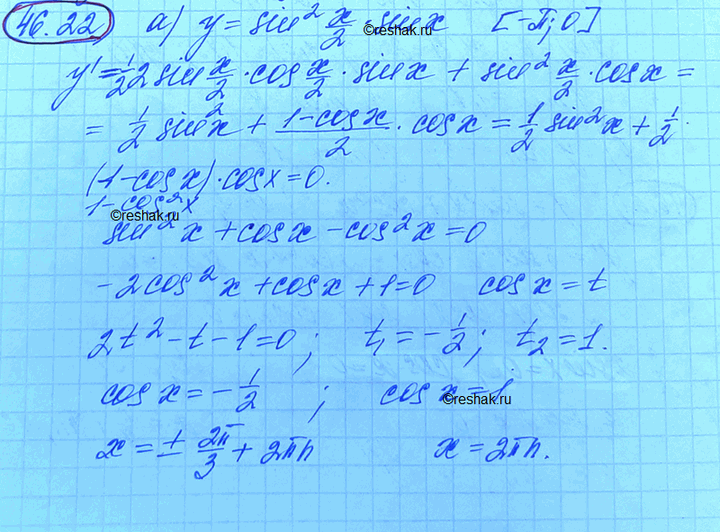 46.22 а) y = sin² x/2 · sinx [-π; 0]
©reshak.ru
y' = 1/2 · 2 sin x/2 · cos x/2 · sin x + sin² x/2 · cos x =
= 1/2 sin² x + (1-cos x)/2 · cos x = 1/2 sin² x + 1/2 ·
(1-cos x) · cos x = 0.
1-cos² x
©reshak.ru
sin² x + cos x - cos² x = 0
-2cos² x + cos x + 1 = 0 cos x = t
2t² - t - 1 = 0 ; t₁ = -1/2 ; t₂ = 1.
cos x = -1/2 ; cos x = 1
©reshak.ru
x = ± 2π/3 + 2πn x = 2πn.